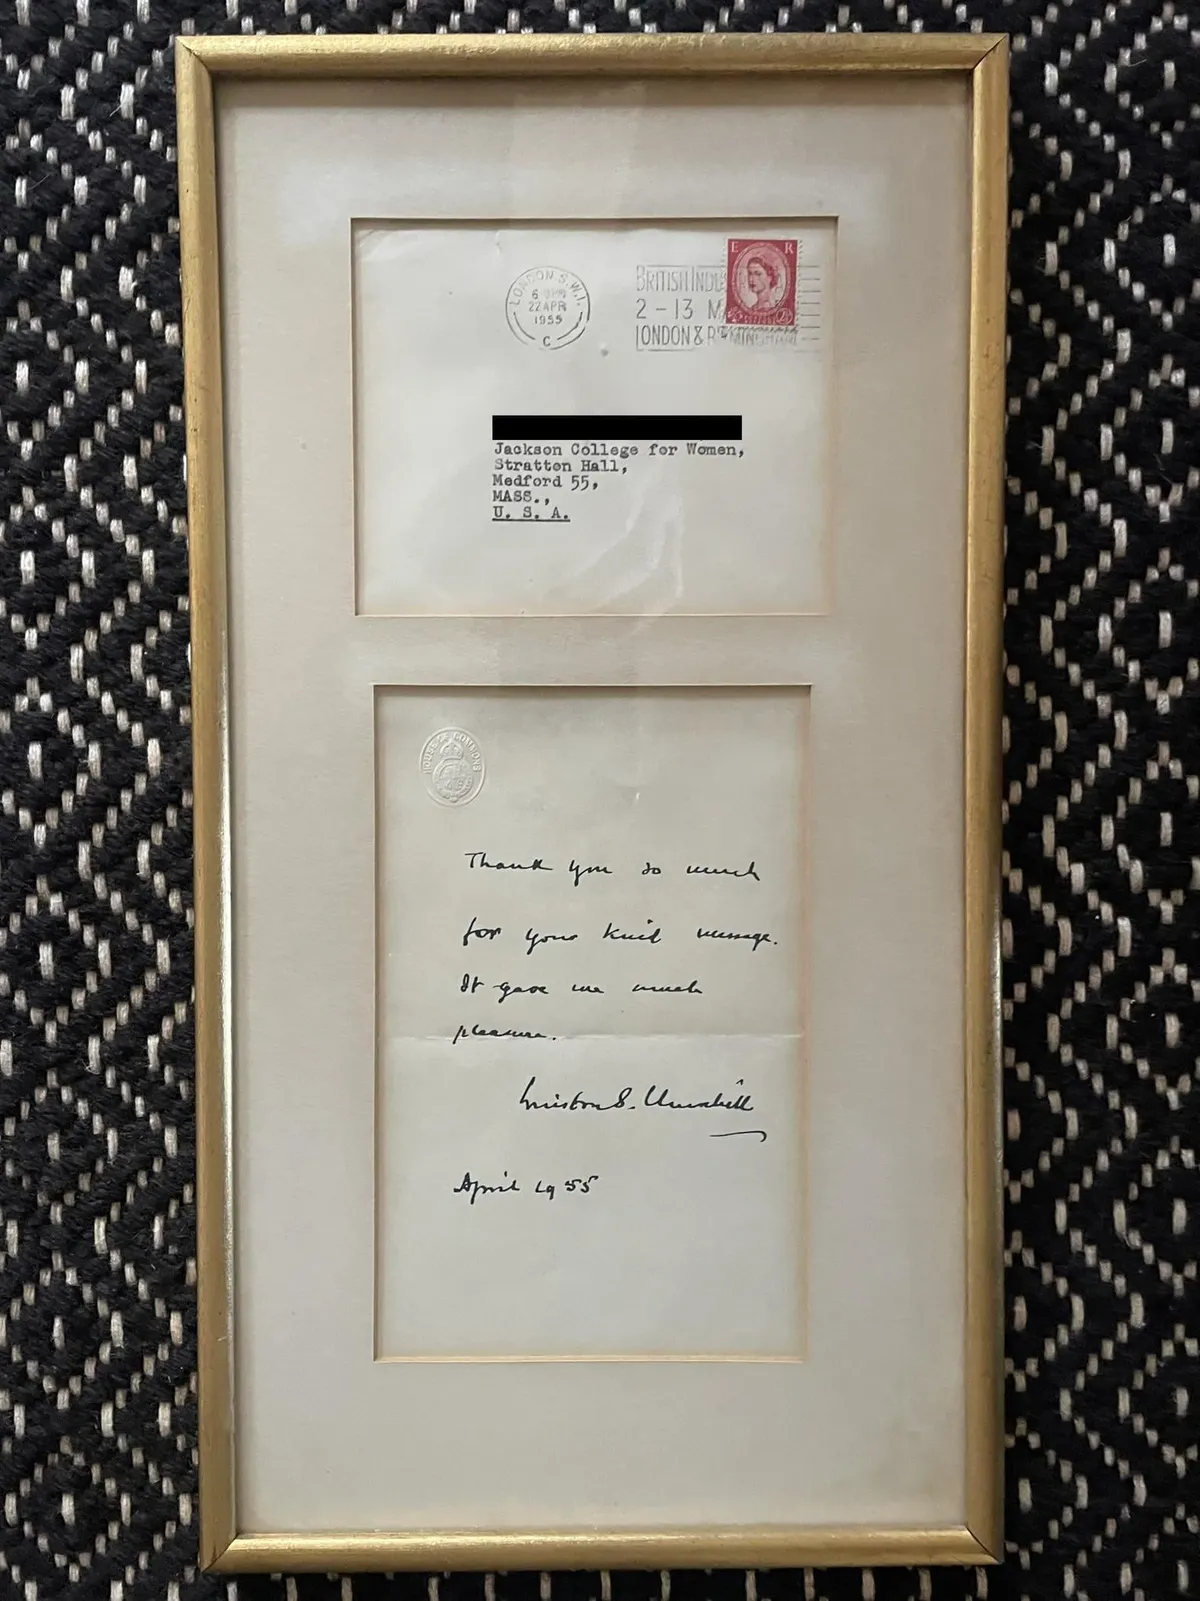 LONDON S.W.1.
6 PM
22 APR
1955
C
BRITISH INDU
2 - 13 M
LONDON & B MINGHAM
E R
2½
Jackson College for Women,
Stratton Hall,
Medford 55,
MASS.,
U. S. A.
HOUSE OF COMMONS
Thank you so much
for your kind message.
It gave me much
pleasure.
Winston S. Churchill
April 1955